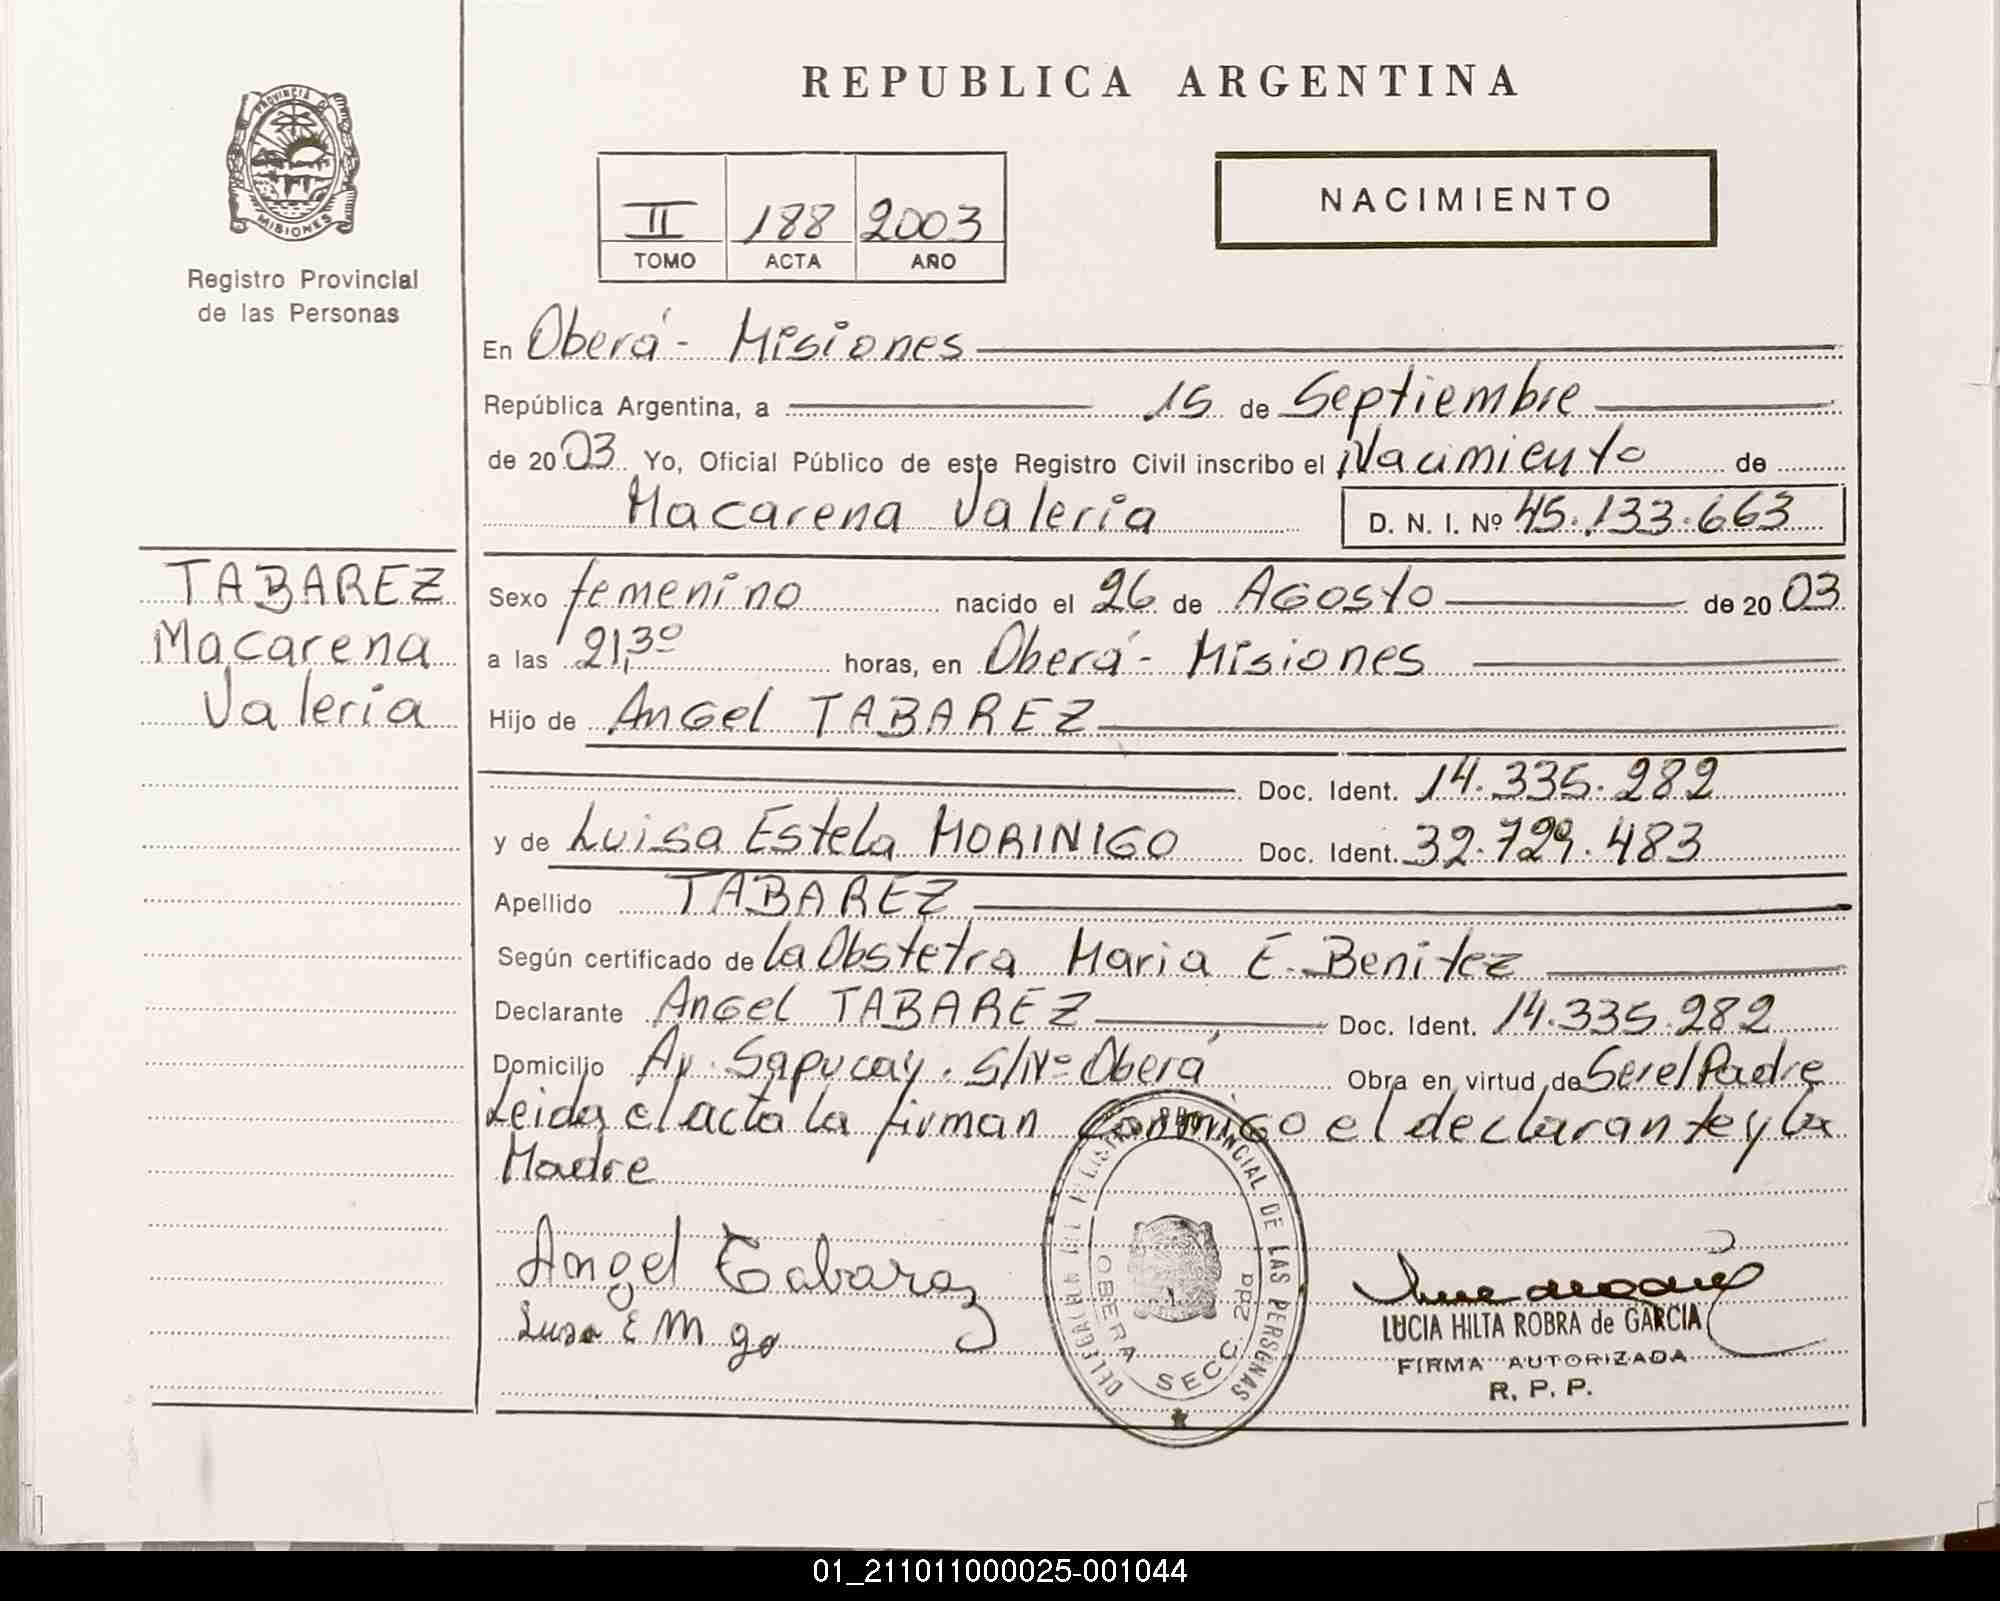 REPUBLICA ARGENTINA
PROVINCIA DE MISIONES
Registro Provincial
de las Personas
II 188 2003
TOMO ACTA AÑO
NACIMIENTO
En Oberá - Misiones
República Argentina, a 15 de Septiembre
de 2003 Yo, Oficial Público de este Registro Civil inscribo el Nacimiento de
Macarena Valeria D. N. I. Nº 45.133.663
TABAREZ
Macarena
Valeria
Sexo femenino nacido el 26 de Agosto de 2003
a las 21,30 horas, en Oberá - Misiones
Hijo de Angel TABAREZ
Doc. Ident. 14.335.282
y de Luisa Estela MORINIGO Doc. Ident. 32.729.483
Apellido TABAREZ
Según certificado de la Obstetra Maria E. Benitez
Declarante Angel TABAREZ Doc. Ident. 14.335.282
Domicilio Av. Sapucay. S/Nº Oberá Obra en virtud de Ser el Padre
Leida el acta la firman Conmigo el declarante y la
Madre
Angel Tabarez
Luisa E M go
REGISTRO PROVINCIAL DE LAS PERSONAS
OBERA SECC. 2da
LUCIA HILTA ROBRA de GARCIA
FIRMA AUTORIZADA
R. P. P.
01_211011000025-001044